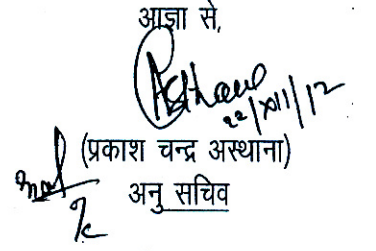 आज्ञा से,
22/XII/12
(प्रकाश चन्द्र अस्थाना)
अनु सचिव